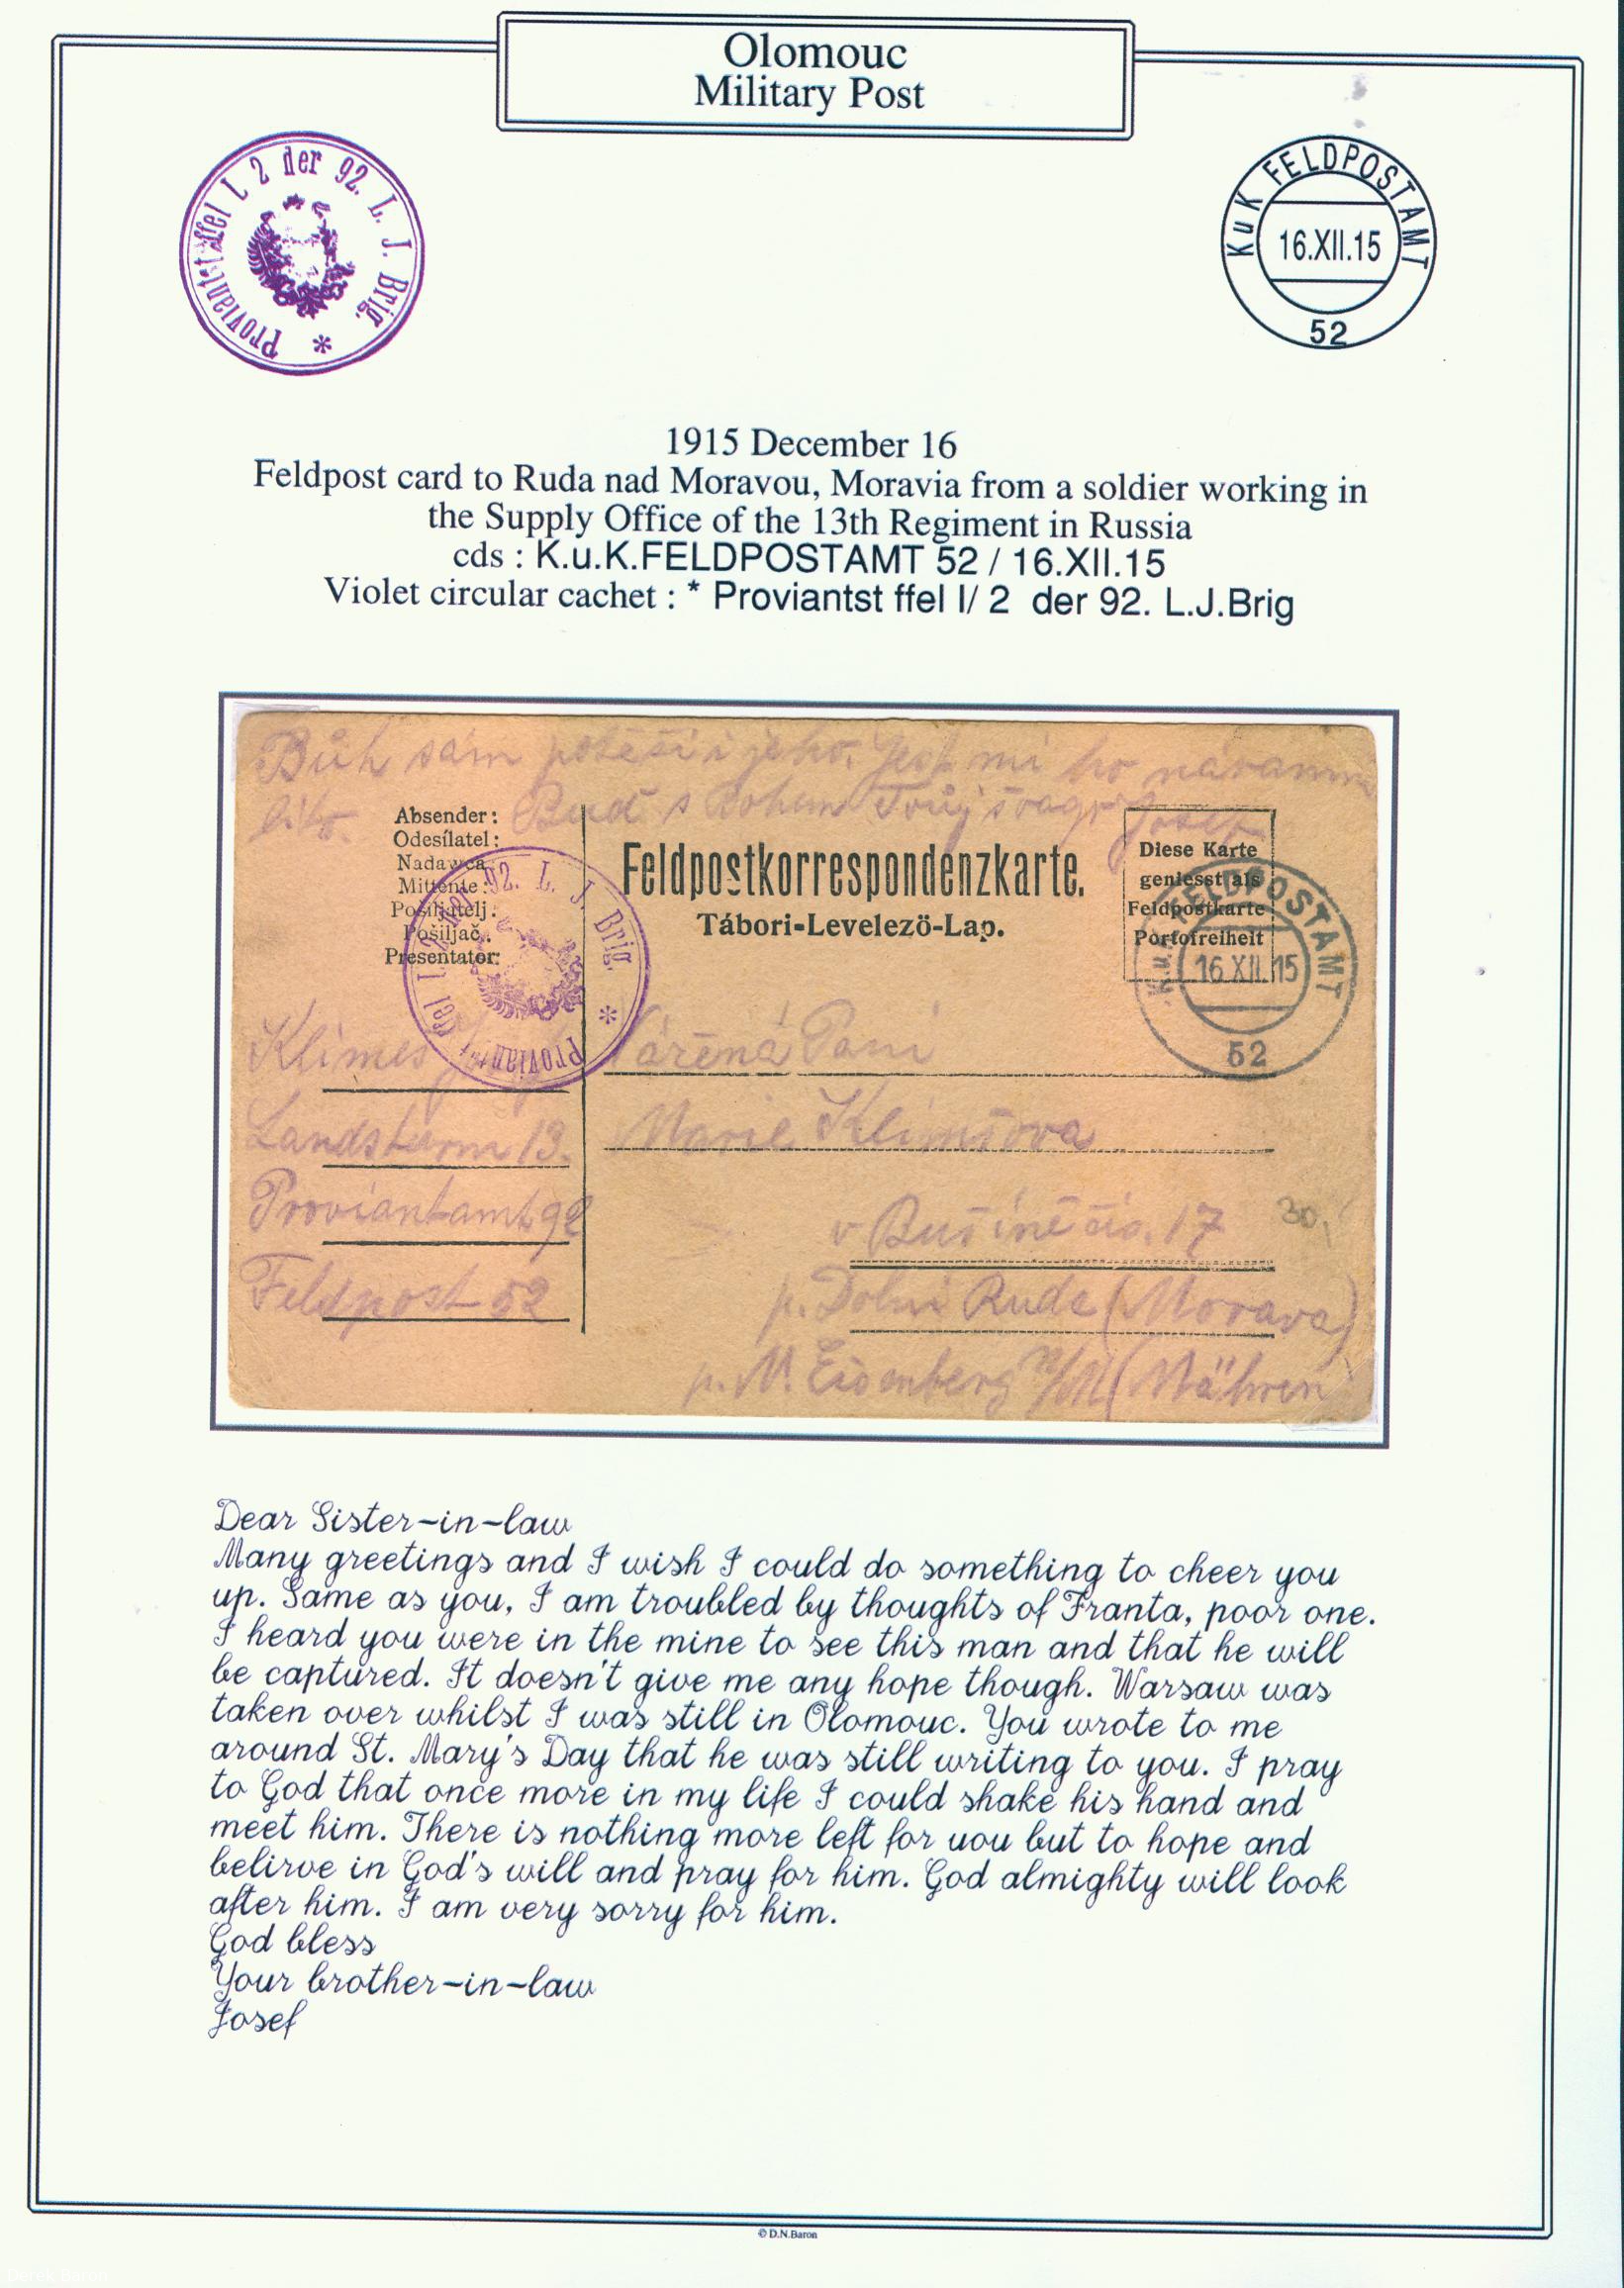 Olomouc
Military Post
Proviantstaffel I. 2 der 92. L. J. Brig. *
KuK FELDPOSTAMT
16.XII.15
52
1915 December 16
Feldpost card to Ruda nad Moravou, Moravia from a soldier working in
the Supply Office of the 13th Regiment in Russia
cds : K.u.K.FELDPOSTAMT 52 / 16.XII.15
Violet circular cachet : * Proviantst ffel I/ 2 der 92. L.J.Brig
Bůh sám potěší i jeho. Jest mi ho náramně
líto. Buď s Bohem Tvůj švagr Josef
Absender:
Odesílatel:
Nadawca:
Mittente:
Pošiljatelj:
Pošiljač:
Presentator:
Feldpostkorrespondenzkarte.
Tábori-Levelezö-Lap.
Diese Karte
geniesst als
Feldpostkarte
Portofreiheit
92. L. J. Brig. * Proviant
FELDPOSTAMT
16.XII.15
52
Klimeš
Landsturm 13.
Proviantamt 92
Feldpost 52
Vážená Paní
Marie Klimšova
v Bušíně čís. 17
30
p. Dolní Ruda (Morava)
p. M. Eisenberg n/M (Mähren
Dear Sister-in-law
Many greetings and I wish I could do something to cheer you
up. Same as you, I am troubled by thoughts of Franta, poor one.
I heard you were in the mine to see this man and that he will
be captured. It doesn't give me any hope though. Warsaw was
taken over whilst I was still in Olomouc. You wrote to me
around St. Mary's Day that he was still writing to you. I pray
to God that once more in my life I could shake his hand and
meet him. There is nothing more left for uou but to hope and
belirve in God's will and pray for him. God almighty will look
after him. I am very sorry for him.
God bless
Your brother-in-law
Josef
© D.N.Baron
Derek Baron